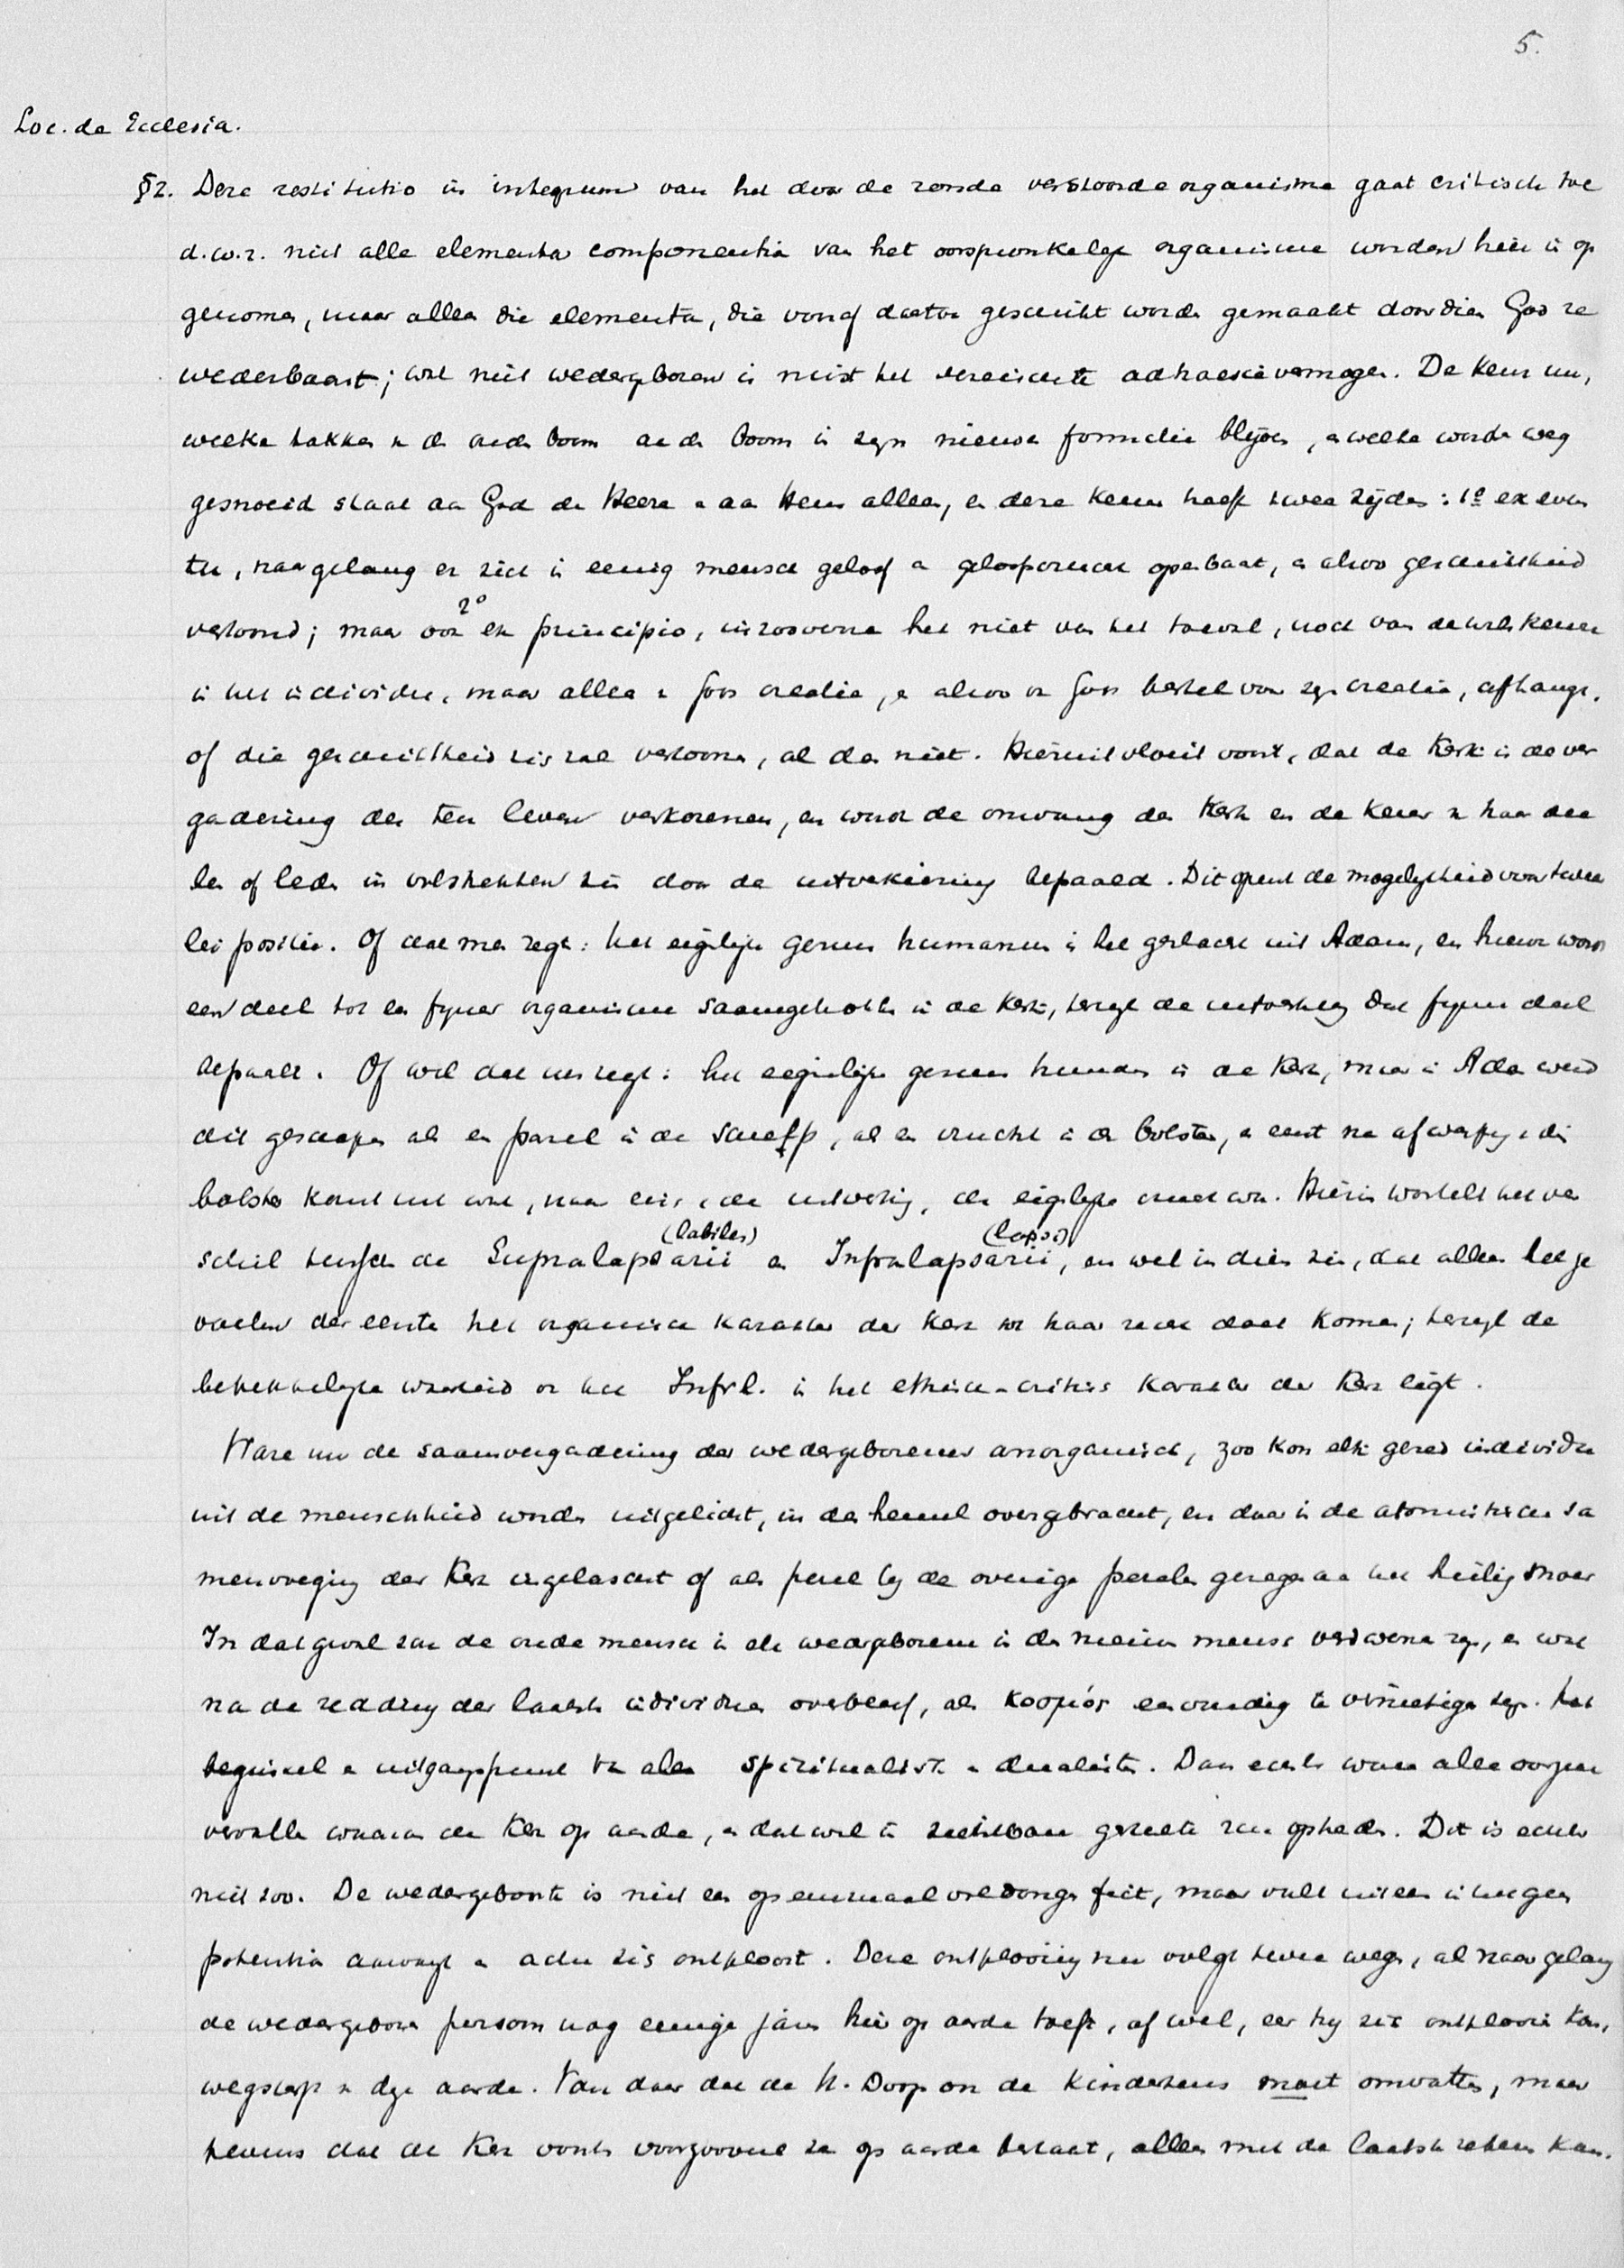 5.
Loc. de Ecclesia.
§2. Deze restitutio in integrum van het door de zonde verstoorde organisme gaat critisch toe
d.w.z. niet alle elementa componentia van het oorspronkelyk organisme worden hier in op
genomen, maar alleen die elementa, die vooraf daartoe geschikt worden gemaakt doordien God ze
wederbaart; wat niet wedergeboren is mist het vereischte adhaesievermogen. De keur nu,
welke takken v. d. ouden boom aan den boom in zyn nieuwe formatie blijven, en welke worden weg
gesnoeid staat aan God den Heere en aan Hem alleen, en deze keur heeft twee zijden: 1º ex even
tu, naar gelang er zich in eenig mensch geloof en geloofsvrucht openbaart, en alzoo geschiktheid
vertoond; maar ook 2º ex principio, inzooverre het niet van het toeval, noch van de wilskeuze
in het individu, maar alleen v. Gods creatie, en alzoo v. Gods bestel voor zyn creatie, afhangt,
of die geschiktheid zich zal vertoonen, al dan niet. Hieruit vloeit voort, dat de Kerk is de ver
gadering der ten leven verkorenen, en wordt de omvang der Kerk en de keuze v. haar dee
len of leden in volstrekten zin door de uitverkiezing bepaald. Dit opent de mogelykheid van twee
lei positie. Of dat men zegt: het eigelijke genus humanum is het geslacht uit Adam, en hieruit wordt
een deel tot een fyner organisme saamgetrokken in de Kerk, terwyl de uitverkiezing dat fyner deel
bepaalt. Of wel dat men zegt: het eigenlijke genus humanum is de Kerk, maar in Adam werd
dit geschapen als een parel in de schelp, als een vrucht in de bolster, en eerst na afwerping v. dien
bolster komt uit wat, naar eisch v. de uitverkiezing, de eigelyke mensch was. Hierin wortelt het ver
schil tusschen de Supralapsarii (labiles) en Infralapsarii (lapsi), en wel in dien zin, dat alleen het ge
voelen der eerste het organisch karakter der Kerk tot haar recht doet komen; terwyl de
betrekkelyke waarheid v. het Infrl. in het ethisch-critisch karakter der Kerk ligt.
Ware nu de saamvergadering der wedergeborenen anorganisch, zoo kon elk gered individu
uit de menschheid worden uitgelicht, in den hemel overgebracht, en daar in de atomistische sa
menvoeging der Kerk ingelascht of als parel by de overige paerelen geregen aan het heilig snoer
In dat geval zou de oude mensch in elk wedergeborene in den nieuwen mensch verdwenen zyn, en wat
na de redding der laatste individuen overbleef, als κοσμος eenvoudig te vernietigen zyn. Het
beginsel en uitgangspunt van alle spiritualisten en dualisten. Dan echter ware alle oorzaak
vervallen waarom de Kerk op aarde, en dat wel in zichtbare gestalte zou optreden. Dit is echter
niet zoo. De wedergeboorte is niet een op eenmaal voldongen feit, maar valt uiteen in hetgeen
potentia aanwezig en actu zich ontplooit. Deze ontplooiing nu volgt twee wegen, al naar gelang
de wedergeboren persoon nog eenige jaren hier op aarde toeft, of wel, eer hy zich ontplooien kan,
wegsterft v. deze aarde. Van daar dat de H. Doop ook de kinderkens moet omvatten, maar
tevens dat de Kerk voorts voorzooveel ze op aarde bestaat, alleen met de laatste rekenen kan.